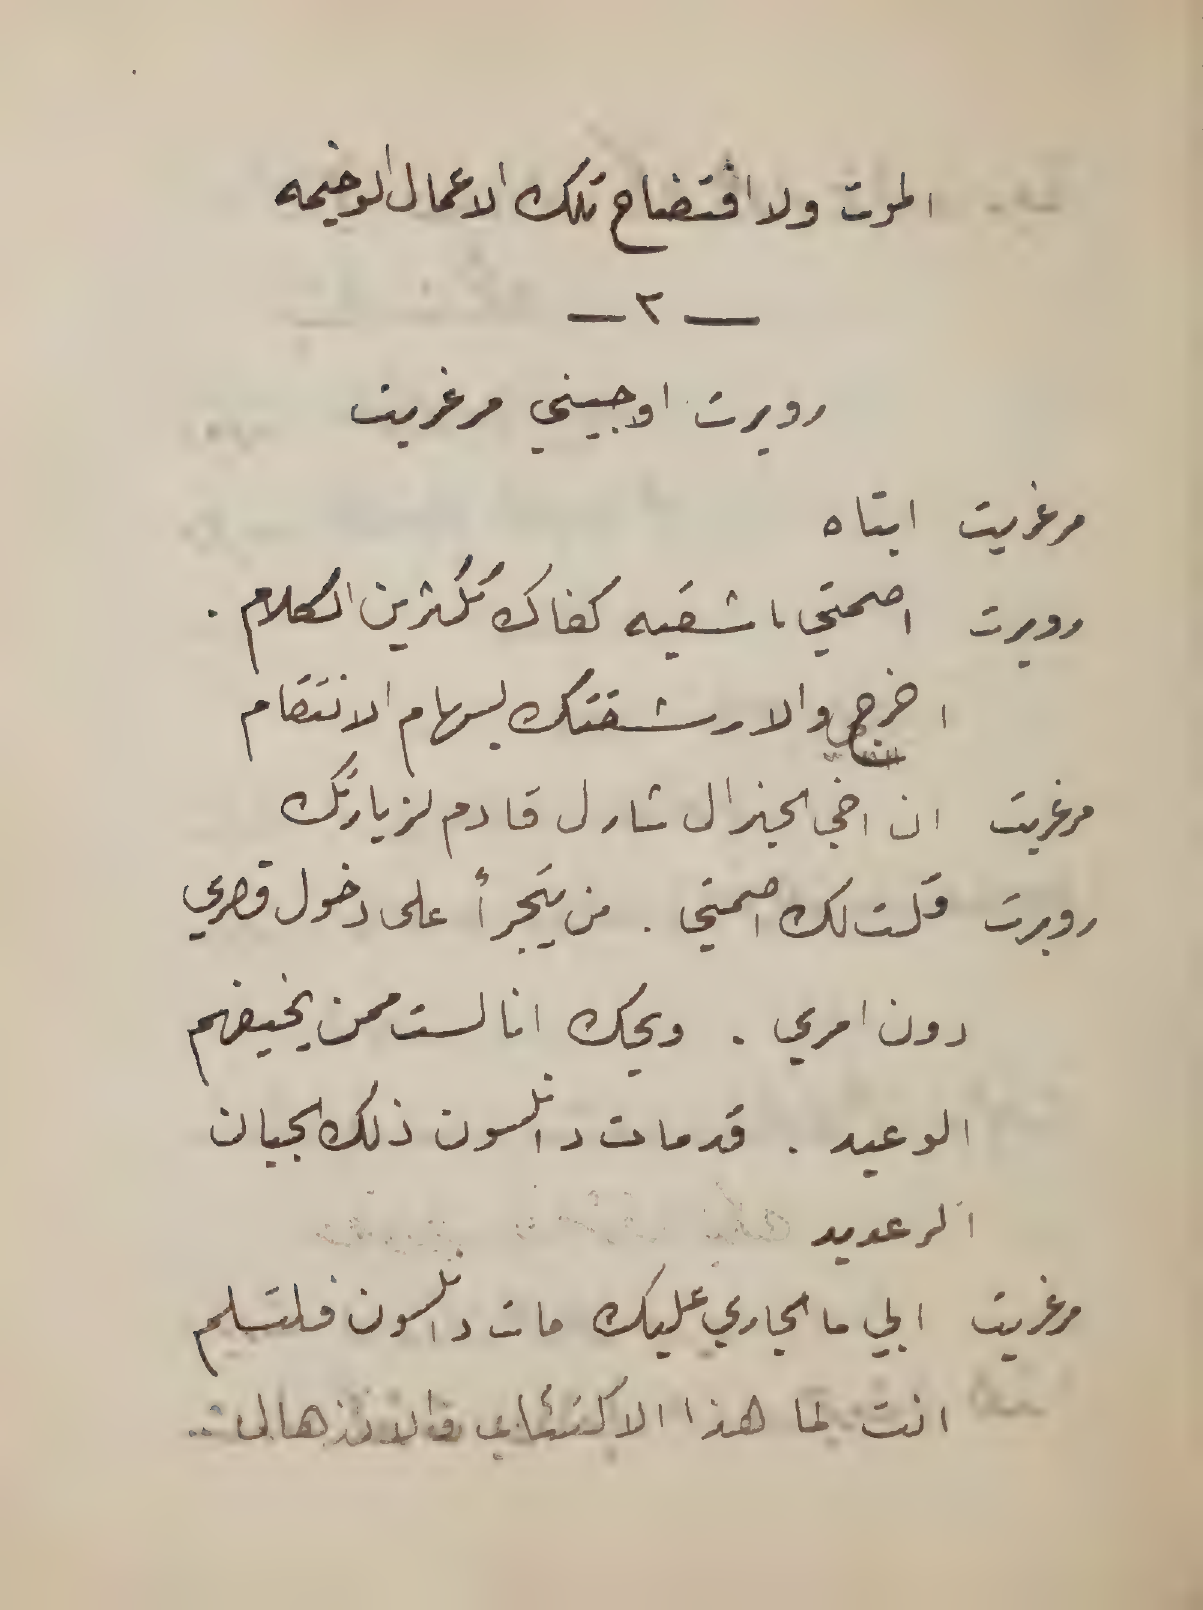 الموت ولا افتضاح تلك الاعمال الوخيمه
— ٢ —
روبرت اوجيني مرغريت
مرغريت ابتاه
روبرت اصمتي يا شقيه كفاك تكثرين الكلام .
اخرجي والا رشقتك بسهام الانتقام
مرغريت ان اخي الجنرال شارل قادم لزيارتك
روبرت قلت لك اصمتي . من يتجرأ على دخول قصري
دون امري . ويحك انا لست ممن يخيفهم
الوعيد . قد مات دانلسون ذلك الجبان
الرعديد
مرغريت ابي ما الجاري عليك مات دانلسون فلتسلم
انت لما هذا الاكتئاب والانذهال